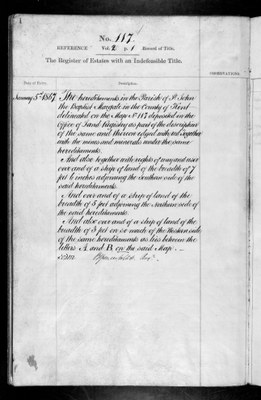 1
No. 117.
REFERENCE Vol. 2 p. 1 Record of Title.
The Register of Estates with an Indefeasible Title.
OBSERVATIONS.
Date of Entry.
Description.
January 5th 1867. The hereditaments in the Parish of St John
the Baptist Margate in the County of Kent
delineated on the Map No 117 deposited in the
Office of Land Registry as part of the description
of the same and thereon edged with red Together
with the mines and minerals under the same
hereditaments.
And also together with rights of way and user
over and of a strip of land of the breadth of 7
feet 6 inches adjoining the Southern side of the
said hereditaments.
And over and of a strip of land of the
breadth of 5 feet adjoining the Northern side of
the said hereditaments.
And also over and of a strip of land of the
breadth of 3 feet on so much of the Western side
of the same hereditaments as lies between the
letters A and B on the said Map. —